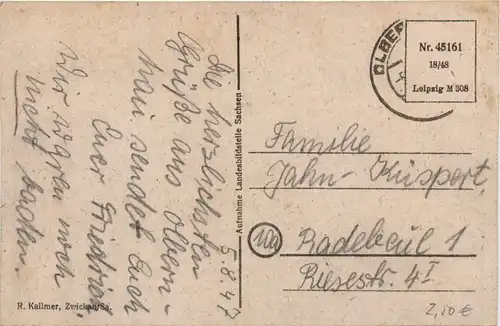 5.8.47
Die herzlichsten
Grüße aus Olbern-
hau sendet Euch
Euer Friedrich.
Wir waren noch
nicht baden.
Aufnahme Landesbildstelle Sachsen
R. Kallmer, Zwickau/Sa.
OLBER
Nr. 45161
18/48
Leipzig M 308
Familie
Jahn-Küspert,
10a
Radebeul 1
Riesestr. 4 I
2,50 €